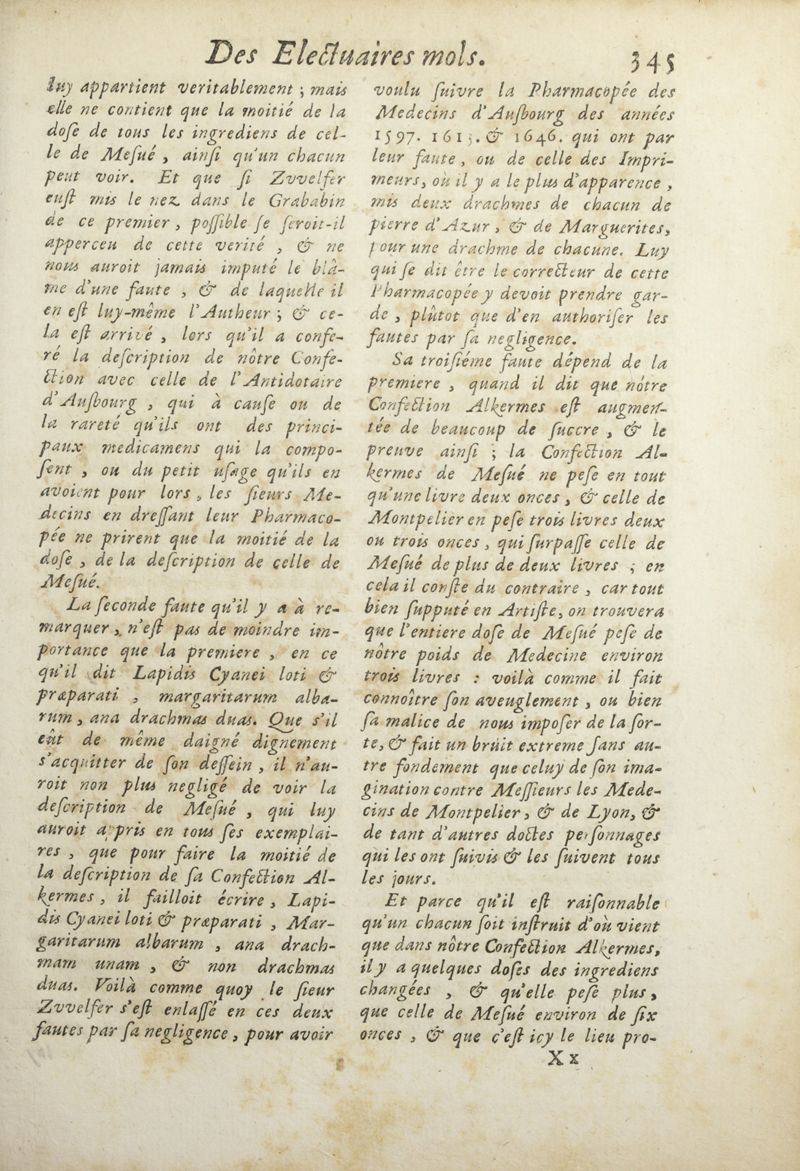 Des Electuaires mols. 345
luy appartient veritablement ; mais
elle ne contient que la moitié de la
dose de tous les ingrediens de cel-
le de Mesué , ainsi qu'un chacun
peut voir. Et que si Zvvelfer
eust mis le nez dans le Grabadin
de ce premier , possible se seroit-il
apperceu de cette verité , & ne
nous auroit jamais imputé le blâ-
me d'une faute , & de laquelle il
en est luy-même l'Autheur ; & ce-
la est arrivé , lors qu'il a confe-
ré la description de nôtre Confe-
ction avec celle de l'Antidotaire
d'Ausbourg , qui à cause ou de
la rareté qu'ils ont des princi-
paux medicamens qui la compo-
sent , ou du petit usage qu'ils en
avoient pour lors , les sieurs Me-
decins en dressant leur Pharmaco-
pée ne prirent que la moitié de la
dose , de la description de celle de
Mesué.
La seconde faute qu'il y a à re-
marquer , n'est pas de moindre im-
portance que la premiere , en ce
qu'il dit Lapidis Cyanei loti &
præparati , margaritarum alba-
rum , ana drachmas duas. Que s'il
eût de même daigné dignement
s'acquitter de son dessein , il n'au-
roit non plus negligé de voir la
description de Mesué , qui luy
auroit appris en tous ses exemplai-
res , que pour faire la moitié de
la description de sa Confection Al-
kermes , il failloit écrire , Lapi-
dis Cyanei loti & præparati , Mar-
garitarum albarum , ana drach-
mam unam , & non drachmas
duas. Voilà comme quoy le sieur
Zvvelfer s'est enlassé en ces deux
fautes par sa negligence , pour avoir
voulu suivre la Pharmacopée des
Medecins d'Ausbourg des années
1597. 1613. & 1646. qui ont par
leur faute , ou de celle des Impri-
meurs, où il y a le plus d'apparence ,
mis deux drachmes de chacun de
pierre d'Azur , & de Marguerites,
pour une drachme de chacune. Luy
qui se dit être le correcteur de cette
Pharmacopée y devoit prendre gar-
de , plûtot que d'en authoriser les
fautes par sa negligence.
Sa troisiéme faute dépend de la
premiere , quand il dit que nôtre
Confection Alkermes est augmen-
tée de beaucoup de succre , & le
preuve ainsi ; la Confection Al-
kermes de Mesué ne pese en tout
qu'une livre deux onces , & celle de
Montpelier en pese trois livres deux
ou trois onces , qui surpasse celle de
Mesué de plus de deux livres ; en
cela il conste du contraire , car tout
bien supputé en Artiste, on trouvera
que l'entiere dose de Mesué pese de
nôtre poids de Medecine environ
trois livres : voilà comme il fait
connoître son aveuglement , ou bien
sa malice de nous imposer de la sor-
te, & fait un bruit extreme sans au-
tre fondement que celuy de son ima-
gination contre Messieurs les Mede-
cins de Montpelier , & de Lyon, &
de tant d'autres doctes personnages
qui les ont suivis & les suivent tous
les jours.
Et parce qu'il est raisonnable
qu'un chacun soit instruit d'où vient
que dans nôtre Confection Alkermes,
il y a quelques doses des ingrediens
changées , & qu'elle pese plus ,
que celle de Mesué environ de six
onces , & que c'est icy le lieu pro-
X x